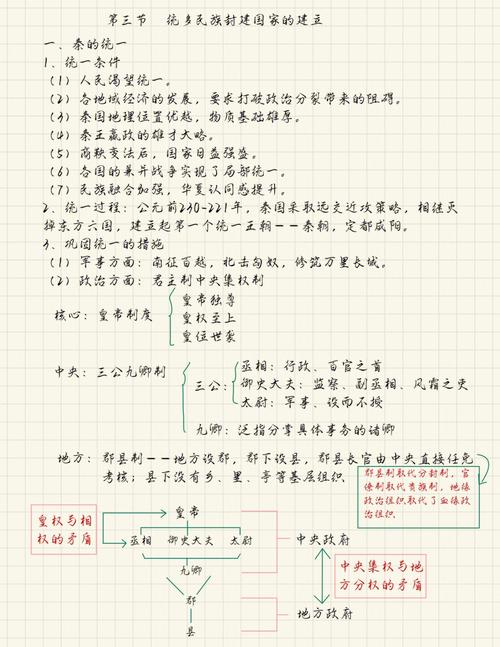 第三节 统多民族封建国家的建立
一、秦的统一
1、统一条件
(1) 人民渴望统一。
(2) 各地域经济的发展，要求打破政治分裂带来的阻碍。
(4) 秦国地理位置优越，物质基础雄厚。
(4) 秦王嬴政的雄才大略。
(5) 商鞅变法后，国家日益强盛。
(6) 各国的兼并战争实现了局部统一。
(7) 民族融合加强，华夏认同感提升。
2、统一过程：公元前230-221年，秦国采取远交近攻策略，相继灭
掉东方六国，建立起第一个统一王朝——秦朝，定都咸阳。
3、巩固统一的措施
(1) 军事方面：南征百越，北击匈奴，修筑万里长城。
(2) 政治方面：君主制中央集权制
核心：皇帝制度
皇帝独尊
皇权至上
皇位世袭
中央：三公九卿制
三公：
丞相：行政、百官之首
御史大夫：监察、副丞相、风霜之吏
太尉：军事、设而不授
九卿：泛指分掌具体事务的诸卿
地方：郡县制——地方设郡，郡下设县，郡县长官由中央直接任免
考核；县下设有乡、里、亭等基层组织
郡县制取代分封制，官
僚制取代贵族制，地缘
政治组织取代了血缘政
治组织
皇权与相
权的矛盾
皇帝
丞相 御史大夫 太尉
九卿
郡
县
中央政府
中央集权与地
方分权的矛盾
地方政府